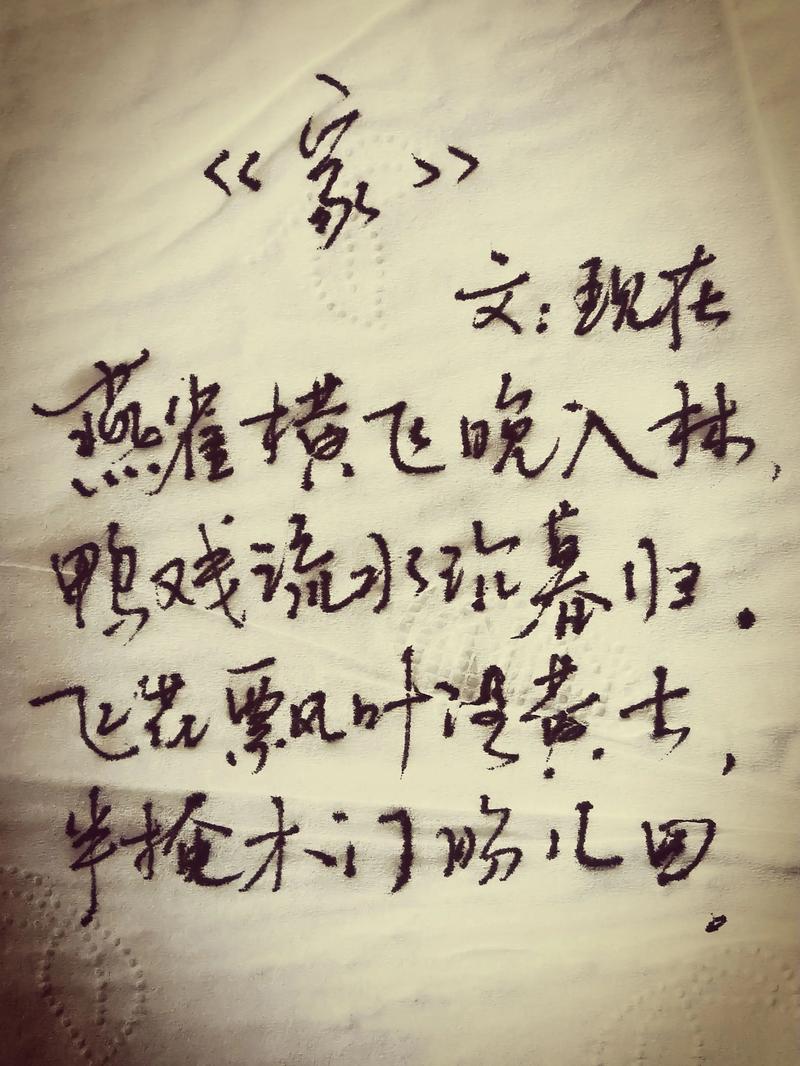 《家》
文：现在
燕雀横飞晚入林，
鸭戏流水暮归。
飞花飘叶没黄土，
半掩木门盼儿回。